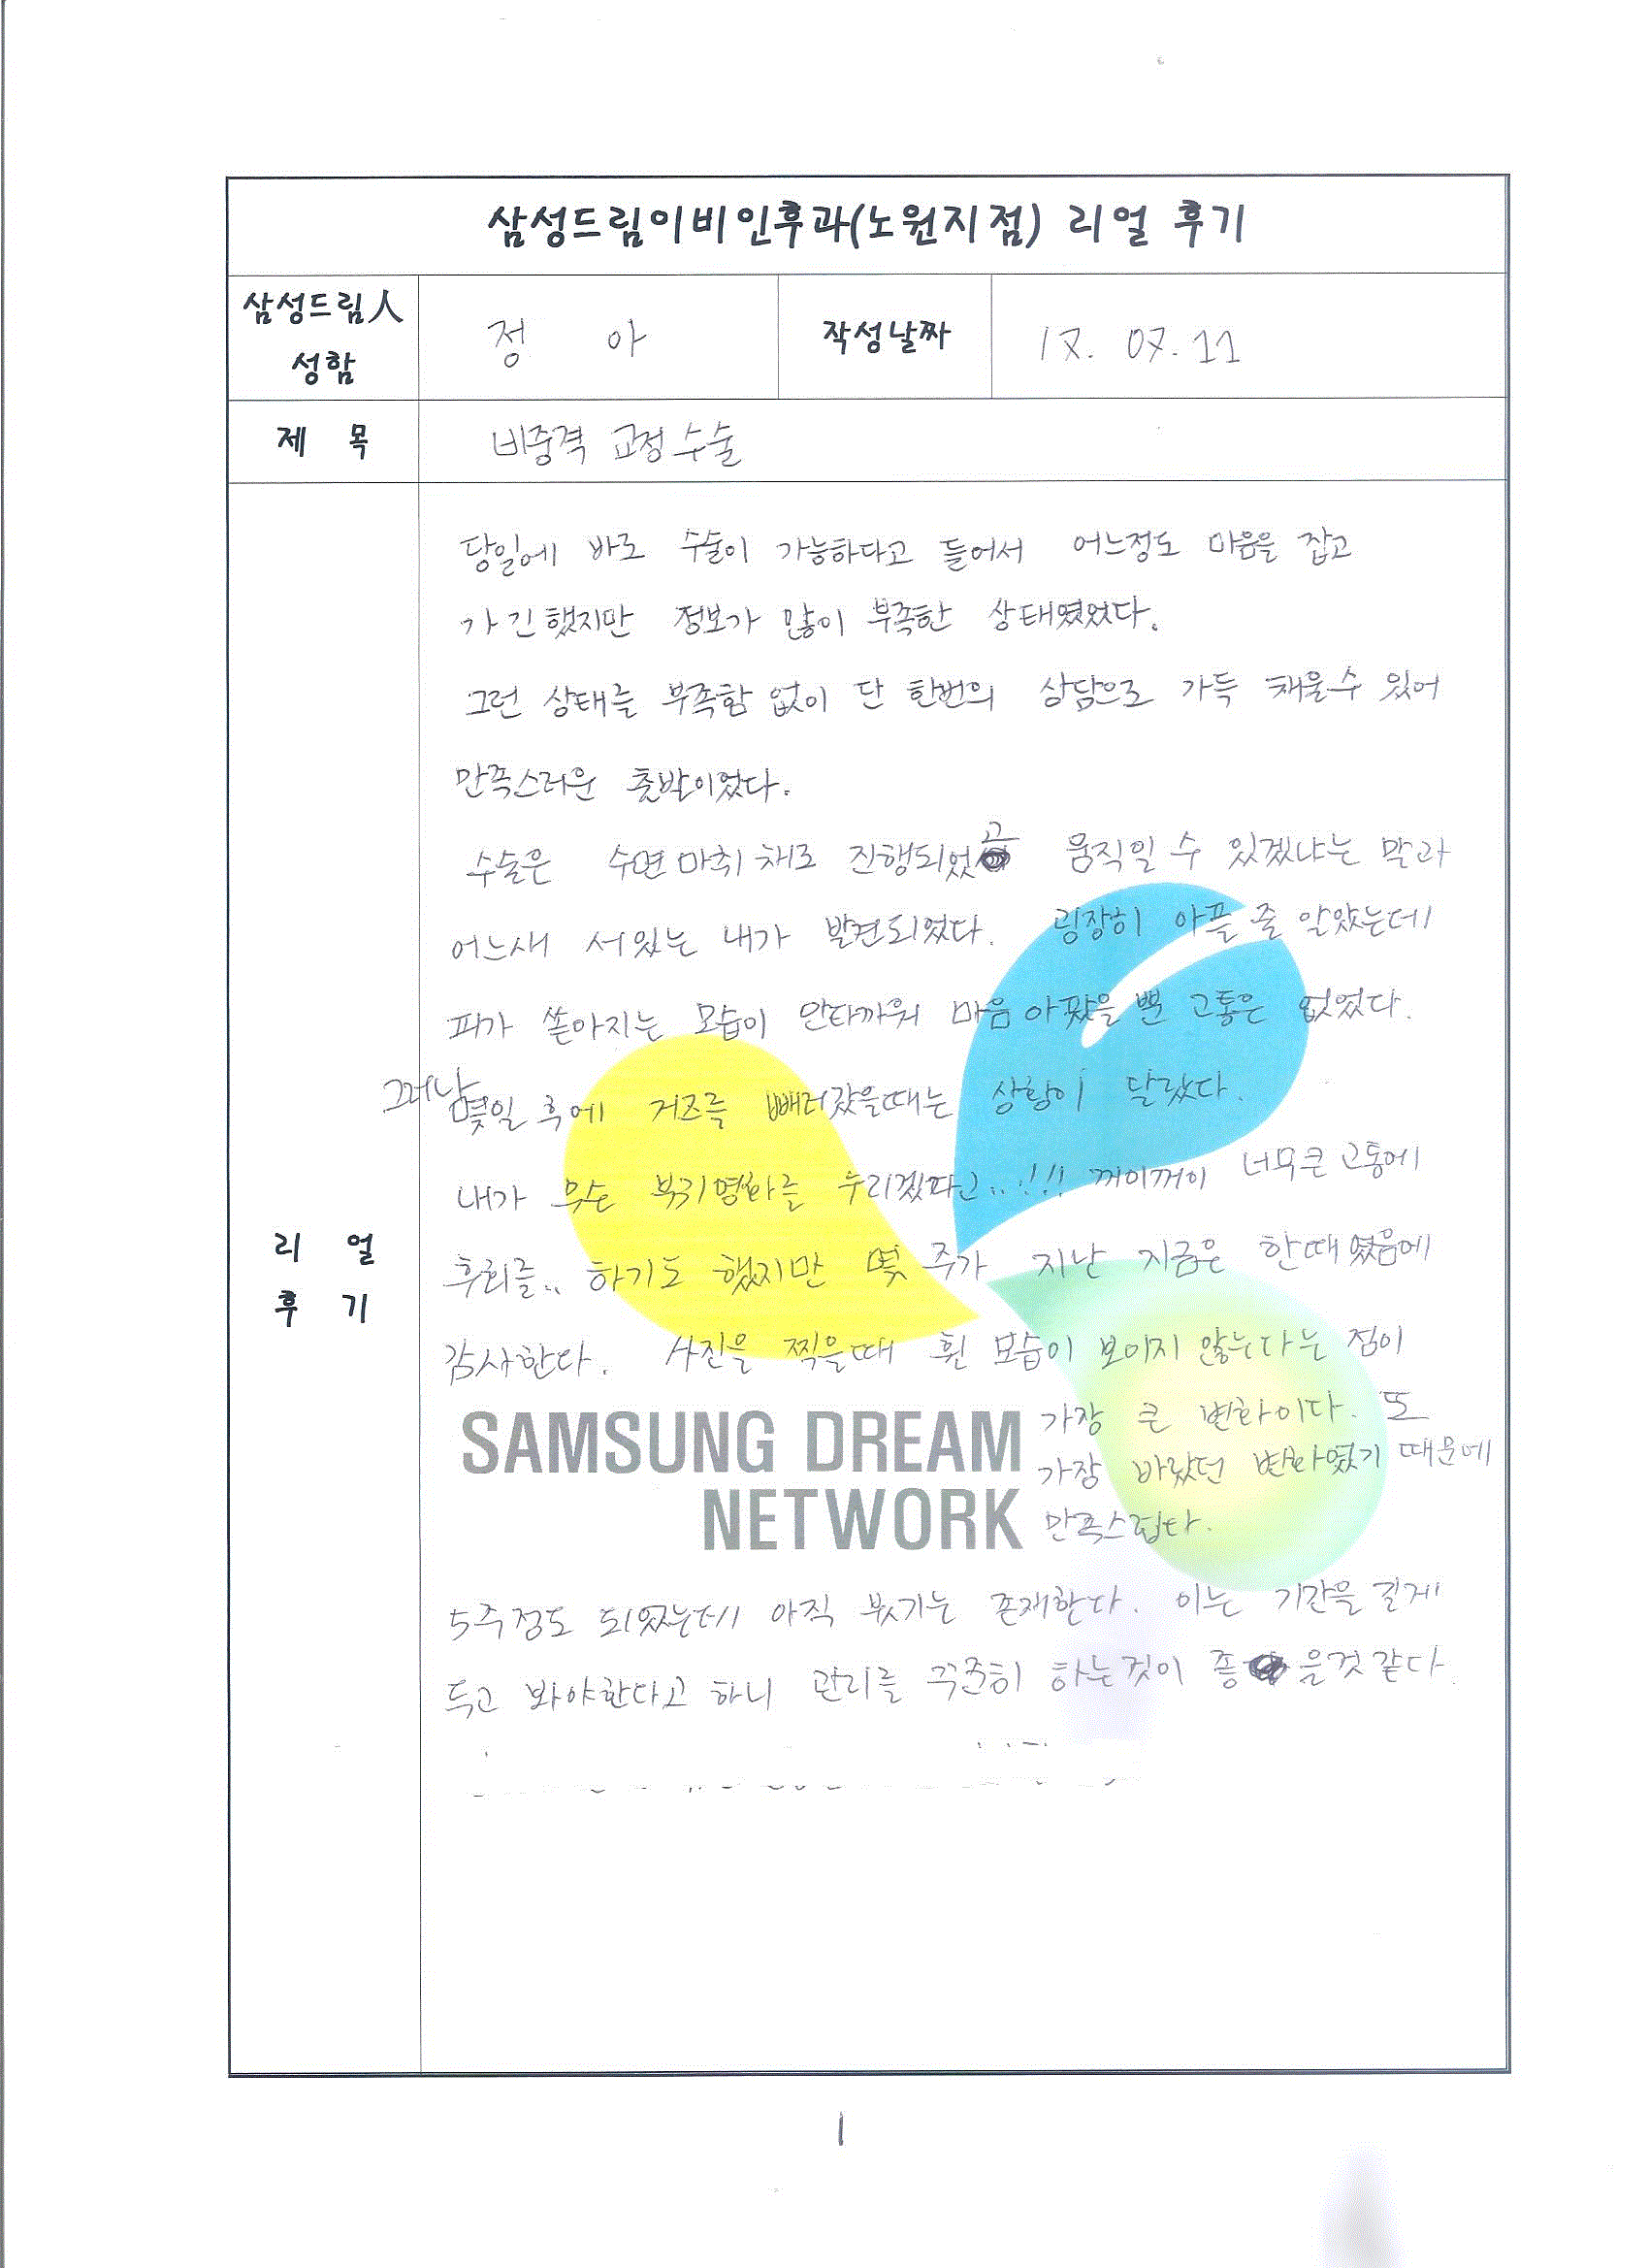 삼성드림이비인후과(노원지점) 리얼 후기
삼성드림人
성함
정 아
작성날짜
17. 07. 11
제 목
비중격 교정수술
당일에 바로 수술이 가능하다고 들어서 어느정도 마음을 잡고
가긴했지만 정보가 많이 부족한 상태였었다.
그런 상태를 부족함 없이 단 한번의 상담으로 가득 채울수 있어
만족스러운 출발이었다.
수술은 수면마취 채로 진행되었고 움직일 수 있겠냐는 말과
어느새 서있는 내가 발견되었다. 굉장히 아플 줄 알았는데
피가 쏟아지는 모습이 안타까워 마음아팠을 뿐 고통은 없었다.
그러나 몇일 후에 거즈를 빼러갔을때는 상황이 달랐다.
내가 무슨 부귀영화를 누리겠다고..!!! 꺼이꺼이 너무큰 고통에
후회를.. 하기도 했지만 몇 주가 지난 지금은 한때였음에
감사한다. 사진을 찍을때 휜 모습이 보이지 않는다는 점이
가장 큰 변화이다. 또
가장 바랐던 변화였기 때문에
만족스럽다.
SAMSUNG DREAM
NETWORK
5주정도 되었는데 아직 붓기는 존재한다. 이는 기간을 길게
두고 봐야한다고 하니 관리를 꾸준히 하는것이 좋을것 같다.
리 얼
후 기
1